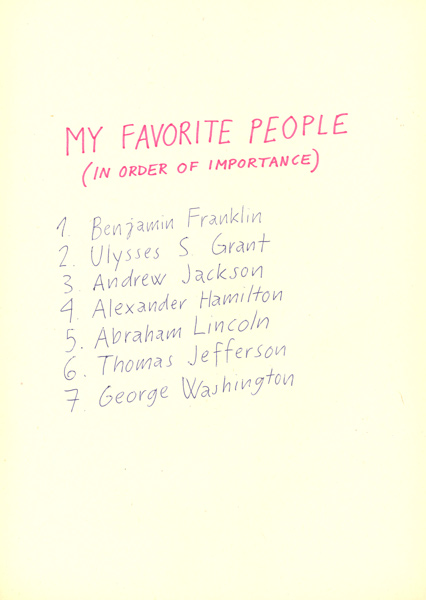 MY FAVORITE PEOPLE
(IN ORDER OF IMPORTANCE)
1. Benjamin Franklin
2. Ulysses S. Grant
3. Andrew Jackson
4. Alexander Hamilton
5. Abraham Lincoln
6. Thomas Jefferson
7. George Washington